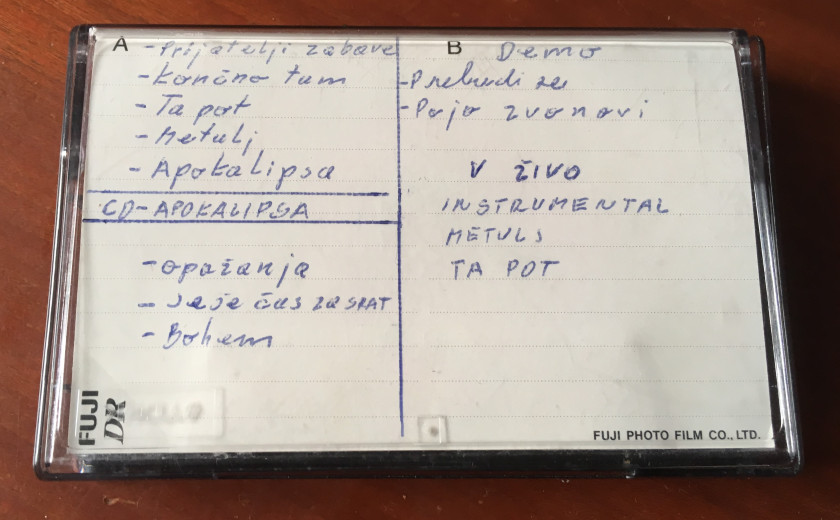 A
- Prijatelji zabave
- Končno tam
- Ta pot
- Metulj
- Apokalipsa
CD - APOKALIPSA
- Opažanja
- Še je čas za SRAT
- Bohem
B Demo
- Prebudi se
- Pojo zvonovi
V ŽIVO
INSTRUMENTAL
METULJ
TA POT
FUJI
DR
FUJI PHOTO FILM CO., LTD.